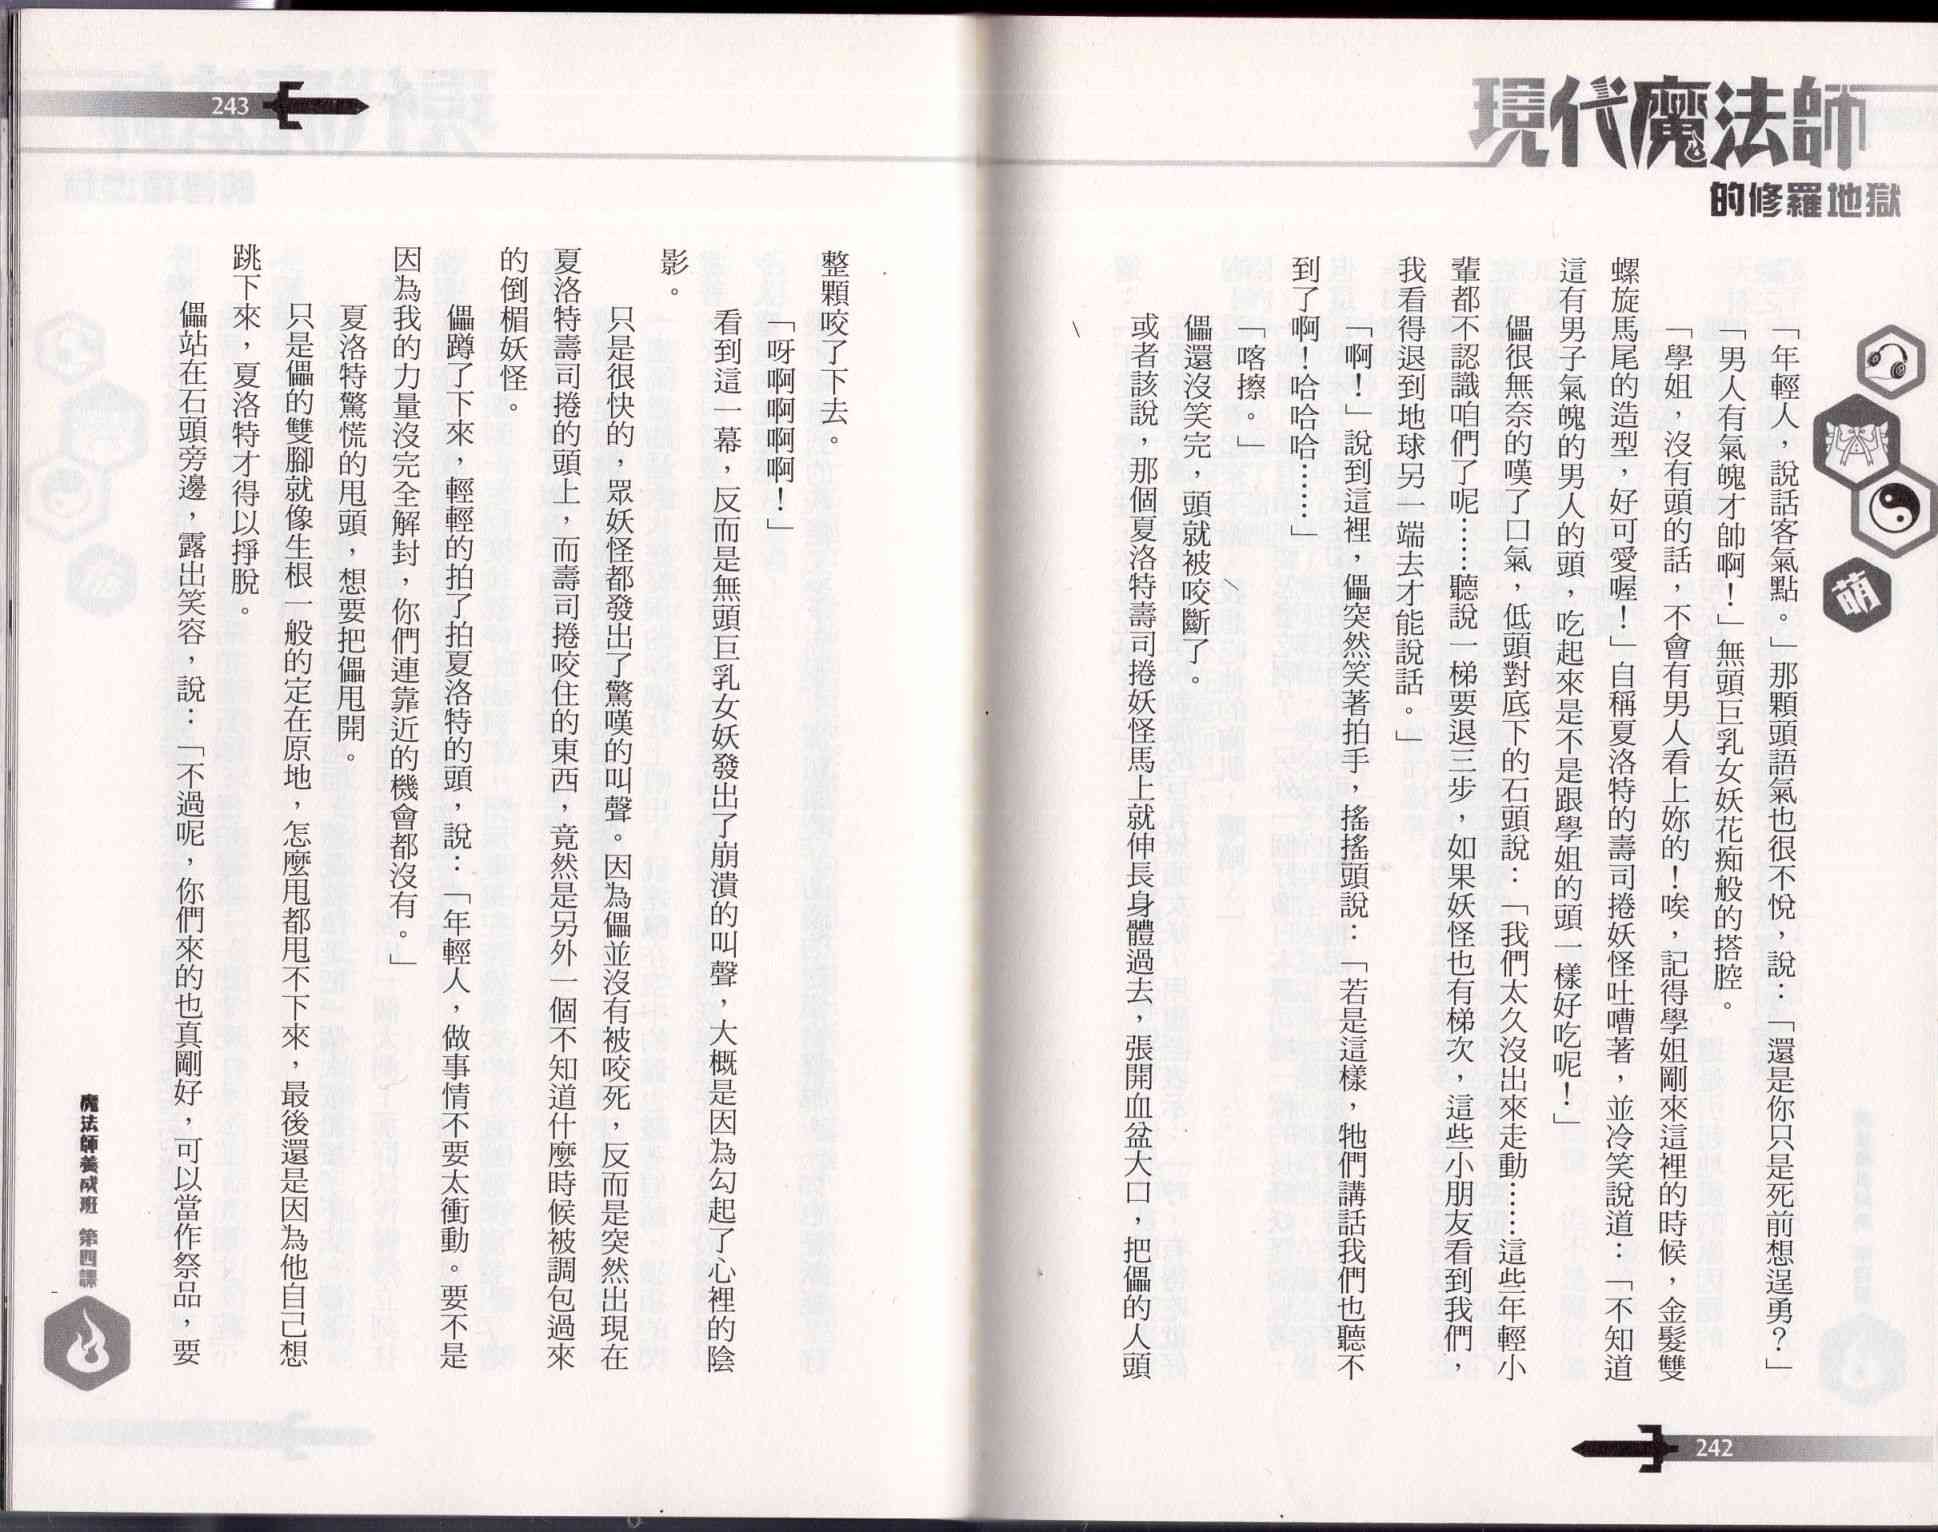 現代魔法師
的修羅地獄
萌
「年輕人，說話客氣點。」那顆頭語氣也很不悅，說：「還是你只是死前想逞勇？」
「男人有氣魄才帥啊！」無頭巨乳女妖花痴般的搭腔。
「學姐，沒有頭的話，不會有男人看上妳的！唉，記得學姐剛來這裡的時候，金髮雙
螺旋馬尾的造型，好可愛喔！」自稱夏洛特的壽司捲妖怪吐嘈著，並冷笑說道：「不知道
這有男子氣魄的男人的頭，吃起來是不是跟學姐的頭一樣好吃呢！」
儡很無奈的嘆了口氣，低頭對底下的石頭說：「我們太久沒出來走動……這些年輕小
輩都不認識咱們了呢……聽說一梯要退三步，如果妖怪也有梯次，這些小朋友看到我們，
我看得退到地球另一端去才能說話。」
「啊！」說到這裡，儡突然笑著拍手，搖搖頭說：「若是這樣，牠們講話我們也聽不
到了啊！哈哈哈……」
「喀擦。」
儡還沒笑完，頭就被咬斷了。
或者該說，那個夏洛特壽司捲妖怪馬上就伸長身體過去，張開血盆大口，把儡的人頭
242
243
整顆咬了下去。
「呀啊啊啊啊！」
看到這一幕，反而是無頭巨乳女妖發出了崩潰的叫聲，大概是因為勾起了心裡的陰
影。
只是很快的，眾妖怪都發出了驚嘆的叫聲。因為儡並沒有被咬死，反而是突然出現在
夏洛特壽司捲的頭上，而壽司捲咬住的東西，竟然是另外一個不知道什麼時候被調包過來
的倒楣妖怪。
儡蹲了下來，輕輕的拍了拍夏洛特的頭，說：「年輕人，做事情不要太衝動。要不是
因為我的力量沒完全解封，你們連靠近的機會都沒有。」
夏洛特驚慌的甩頭，想要把儡甩開。
只是儡的雙腳就像生根一般的定在原地，怎麼甩都甩不下來，最後還是因為他自己想
跳下來，夏洛特才得以掙脫。
儡站在石頭旁邊，露出笑容，說：「不過呢，你們來的也真剛好，可以當作祭品，要
魔法師養成班 第四課